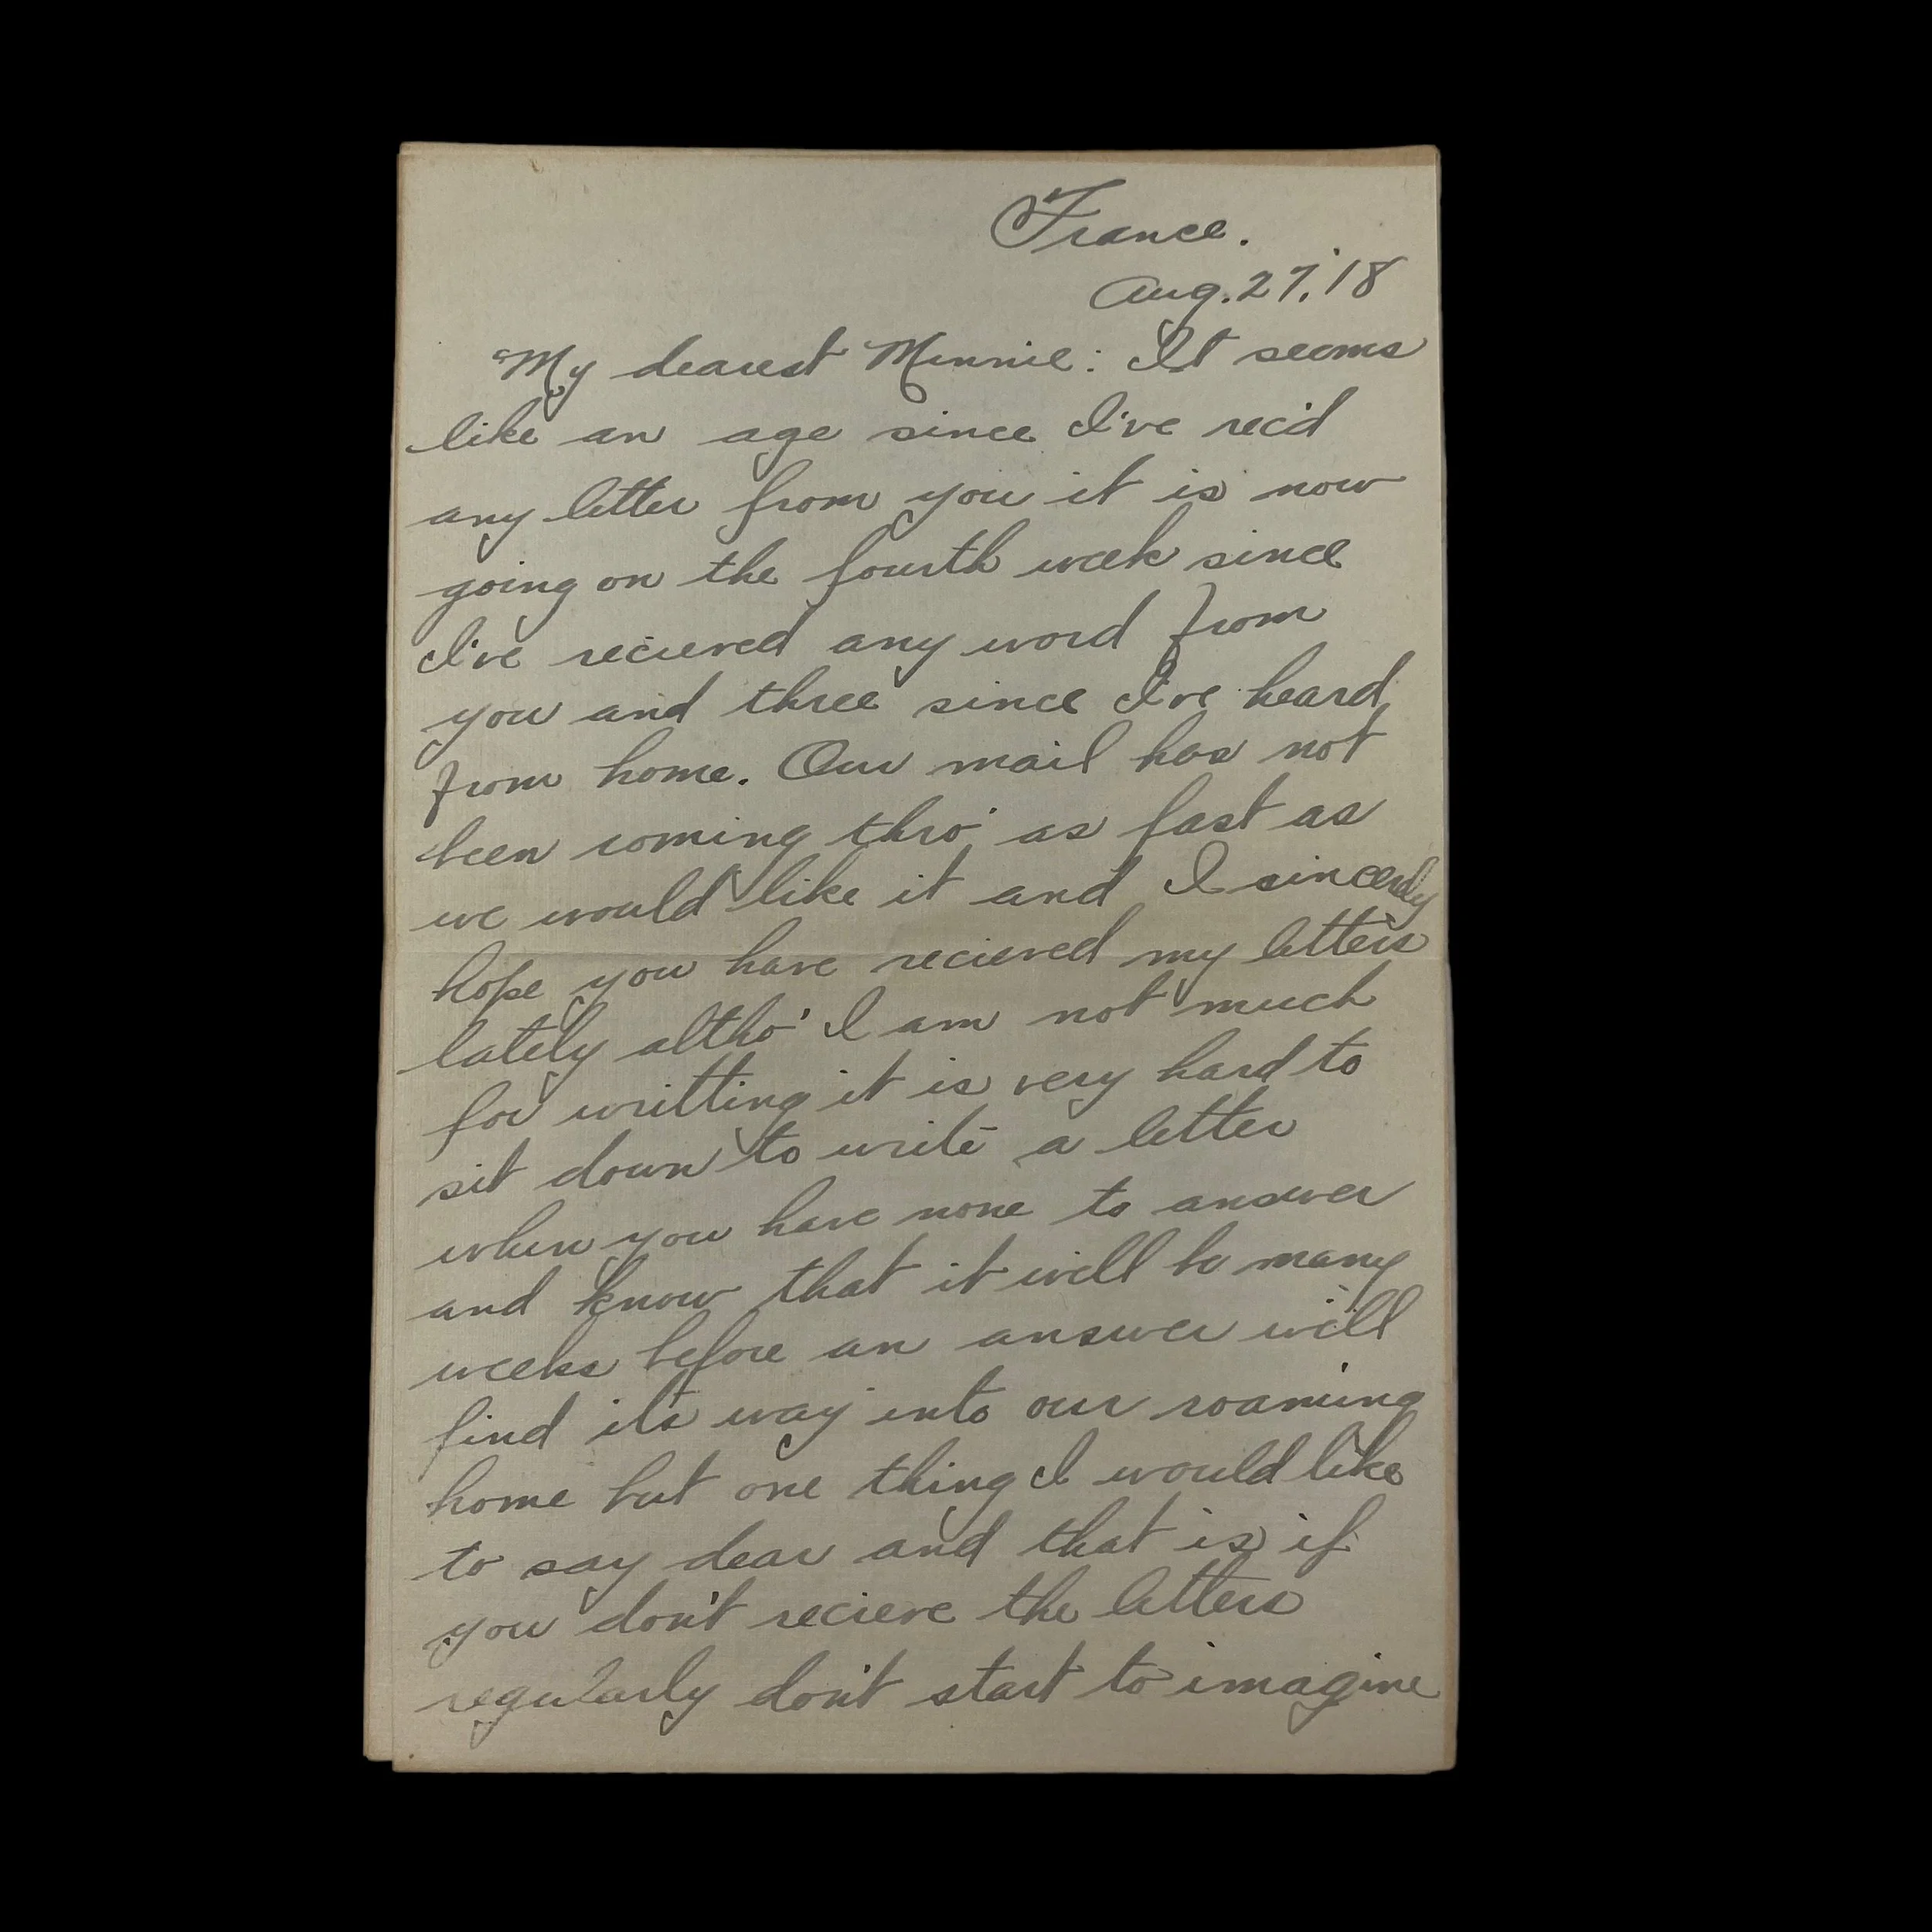 France.
Aug. 27, '18
My dearest Minnie: It seems
like an age since I've rec'd
any letter from you it is now
going on the fourth week since
I've recieved any word from
you and three since I've heard
from home. Our mail has not
been coming thro' as fast as
we would like it and I sincerely
hope you have recieved my letters
lately altho' I am not much
for writting it is very hard to
sit down to write a letter
when you have none to answer
and know that it will be many
weeks before an answer will
find its way into our roaming
home but one thing I would like
to say dear and that is if
you don't recieve the letters
regularly don't start to imagine